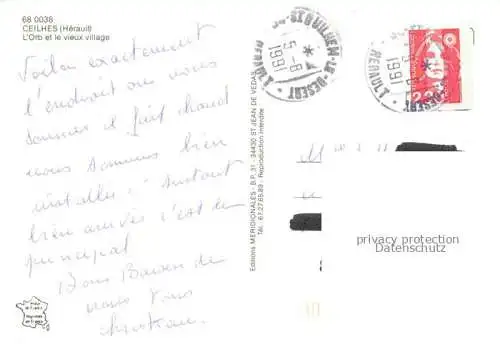 68 0038
CEILHES (Hérault)
L'Orb et le vieux village
Voilà exactement
l'endroit où nous
sommes il fait chaud
nous sommes bien
installés surtout
bien arrivés c'est le
principal
Bons Baisers de
nous tous
Editions MERIDIONALES - B.P. 31 - 34430 ST JEAN DE VEDAS
Tél. 67.27.65.89 - Reproduction interdite
ST GUILHEM-LE-DESERT
5-8
1991
HERAULT
privacy protection
Datenschutz